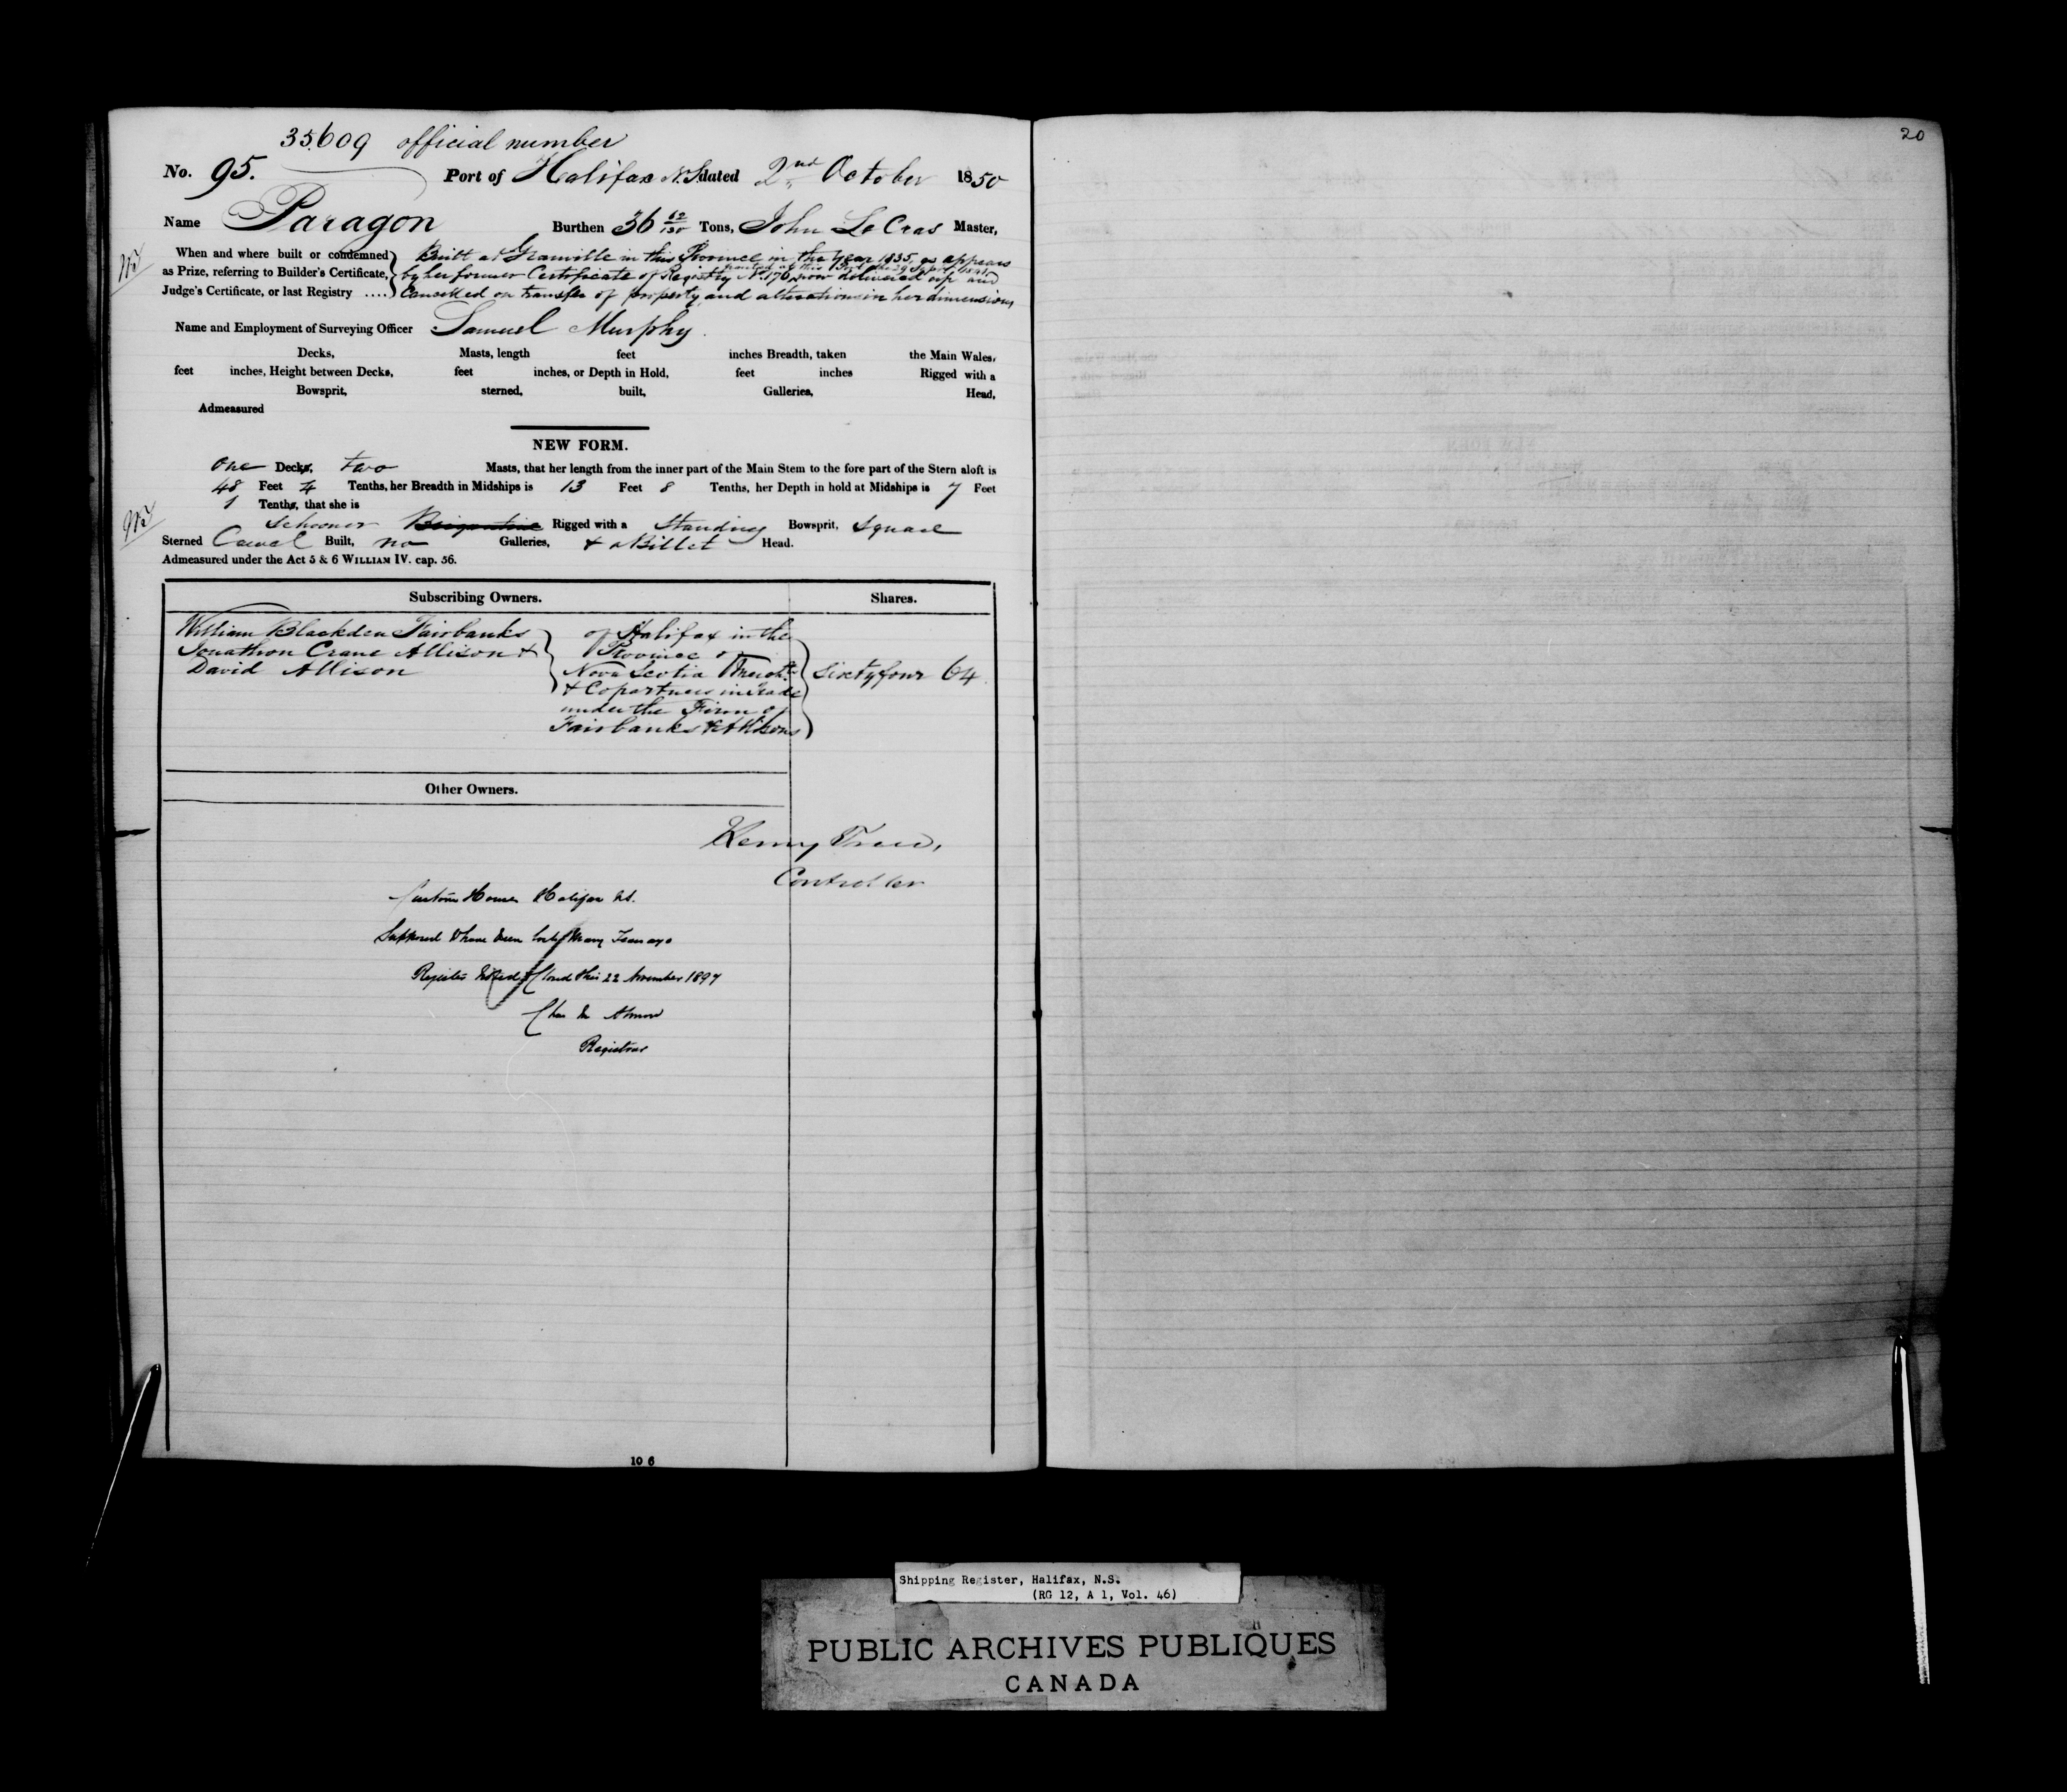 35609 official number
No. 95. Port of Halifax N.S. dated 2nd October 1850
Name Paragon Burthen 36 62/130 Tons, John Le Cras Master,
When and where built or condemned as Prize, referring to Builder's Certificate, Judge's Certificate, or last Registry ....
Built at Granville in this Province in the year 1835, as appears
by her former Certificate of Registry No. 176, now delivered up and
Cancelled on transfer of property, and alterations in her dimensions
Name and Employment of Surveying Officer Samuel Murphy.
Decks, Masts, length feet inches Breadth, taken the Main Wales,
feet inches, Height between Decks, feet inches, or Depth in Hold, feet inches Rigged with a
Bowsprit, sterned, built, Galleries, Head,
Admeasured
NEW FORM.
One Decks, two Masts, that her length from the inner part of the Main Stem to the fore part of the Stern aloft is
48 Feet 4 Tenths, her Breadth in Midships is 13 Feet 8 Tenths, her Depth in hold at Midships is 7 Feet
1 Tenths, that she is
Schooner Brigantine Rigged with a Standing Bowsprit, Square
Sterned Carvel Built, no Galleries, & a Billet Head.
Admeasured under the Act 5 & 6 WILLIAM IV. cap. 56.
Subscribing Owners. Shares.
William Blackden Fairbanks
Jonathon Crane Allison &
David Allison
of Halifax in the
Province of
Nova Scotia Mercht.
& Copartners in Trade
under the Firm of
Fairbanks & Allisons
Sixtyfour 64
Other Owners.
Henry Trew,
Controller
Custom House Halifax NS.
Supposed to have been lost many Years ago
Register Closed this 22 November 1897
Registrar
10 6
20
Shipping Register, Halifax, N.S.
(RG 12, A 1, Vol. 46)
PUBLIC ARCHIVES PUBLIQUES
CANADA